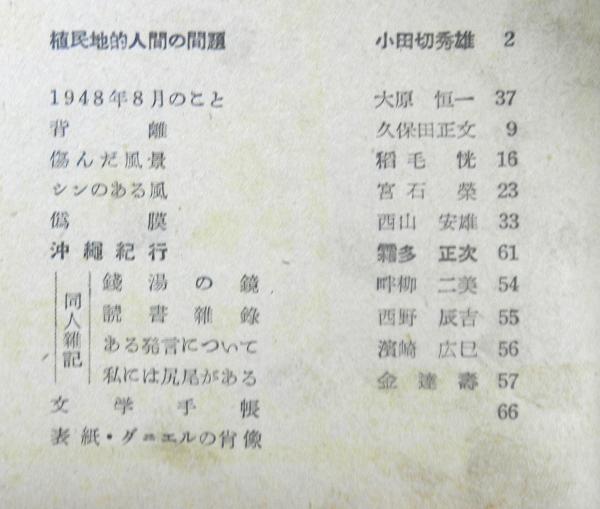 植民地的人間の問題 小田切秀雄 2
1948年8月のこと 大原恒一 37
背離 久保田正文 9
傷んだ風景 稻毛恍 16
シンのある風 宮石榮 23
僞膜 西山安雄 33
沖繩紀行 霜多正次 61
同人雜記
錢湯の鏡 畔柳二美 54
読書雜錄 西野辰吉 55
ある発言について 濱崎広巳 56
私には尻尾がある 金達壽 57
文学手帳 66
表紙・ダニエルの肖像